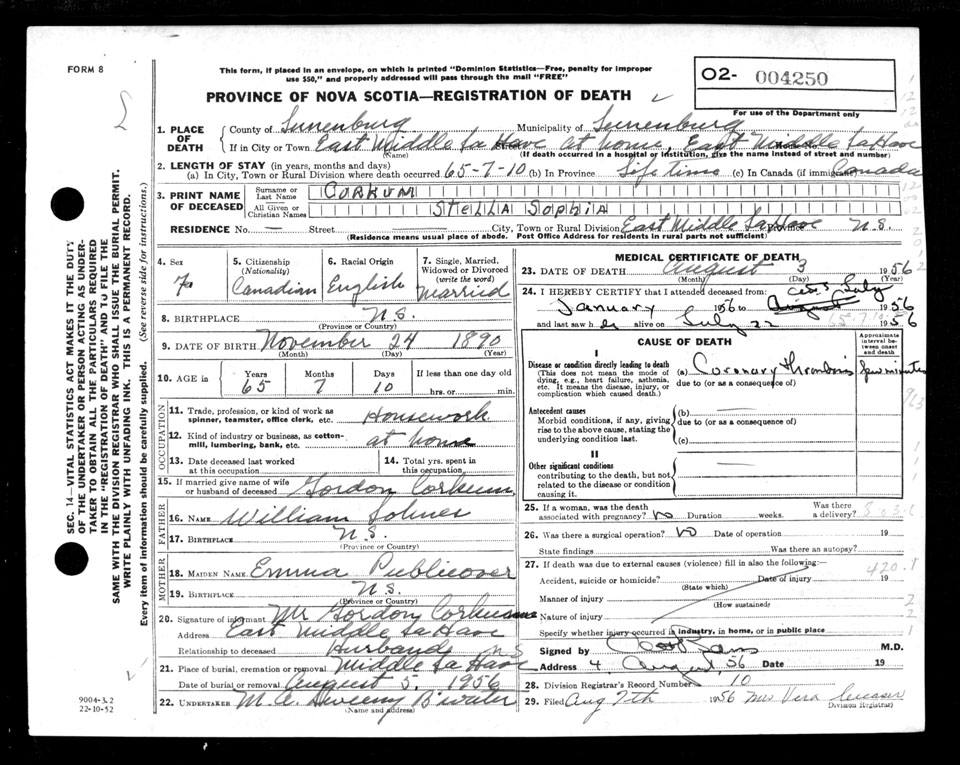 FORM 8
This form, if placed in an envelope, on which is printed "Dominion Statistics—Free, penalty for improper
use $50," and properly addressed will pass through the mail "FREE"
O2- 004250
PROVINCE OF NOVA SCOTIA—REGISTRATION OF DEATH
For use of the Department only
1. PLACE OF DEATH
County of Lunenburg Municipality of Lunenburg
If in City or Town East Middle LaHave at home, East Middle LaHave
(Name) (If death occurred in a hospital or institution, give the name instead of street and number)
2. LENGTH OF STAY (in years, months and days)
(a) In City, Town or Rural Division where death occurred 65-7-10 (b) In Province Life time (c) In Canada (if immigrant) Canada
3. PRINT NAME OF DECEASED
Surname or Last Name CORKUM
All Given or Christian Names STELLA SOPHIA
RESIDENCE No. — Street — City, Town or Rural Division East Middle LaHave Province N.S.
(Residence means usual place of abode. Post Office Address for residents in rural parts not sufficient)
4. Sex F
5. Citizenship (Nationality) Canadian
6. Racial Origin English
7. Single, Married, Widowed or Divorced (write the word) Married
8. BIRTHPLACE N.S.
(Province or Country)
9. DATE OF BIRTH November 24 1890
(Month) (Day) (Year)
10. AGE in Years 65 Months 7 Days 10 If less than one day old
hrs. or min.
OCCUPATION
11. Trade, profession, or kind of work as
spinner, teamster, office clerk, etc. Housework
12. Kind of industry or business, as cotton-
mill, lumbering, bank, etc. at home
13. Date deceased last worked at this occupation
14. Total yrs. spent in this occupation
15. If married give name of wife
or husband of deceased Gordon Corkum
FATHER
16. NAME William Lohnes
17. BIRTHPLACE N.S.
(Province or Country)
MOTHER
18. MAIDEN NAME Emma Publicover
19. BIRTHPLACE N.S.
(Province or Country)
20. Signature of informant Mr Gordon Corkum
Address East Middle LaHave
Relationship to deceased Husband N.S
21. Place of burial, cremation or removal Middle LaHave
Date of burial or removal August 5, 1956
22. UNDERTAKER M. B'water
(Name and address)
MEDICAL CERTIFICATE OF DEATH
23. DATE OF DEATH August 3 1956
(Month) (Day) (Year)
24. I HEREBY CERTIFY that I attended deceased from: July
January 1956 to August 1956
and last saw h er alive on July 22 1956
CAUSE OF DEATH
Approximate interval between onset and death
I
Disease or condition directly leading to death
(This does not mean the mode of
dying, e.g., heart failure, asthenia,
etc. It means the disease, injury, or
complication which caused death.)
(a) Coronary Thrombosis few minutes
due to (or as a consequence of)
Antecedent causes
Morbid conditions, if any, giving
rise to the above cause, stating the
underlying condition last.
(b) —
due to (or as a consequence of)
(c)
II
Other significant conditions
contributing to the death, but not
related to the disease or condition
causing it.
25. If a woman, was the death
associated with pregnancy? no Duration weeks. Was there a delivery?
26. Was there a surgical operation? no Date of operation 19
State findings Was there an autopsy?
27. If death was due to external causes (violence) fill in also the following:— 420.1
Accident, suicide or homicide? Date of injury 19
(State which)
Manner of injury
(How sustained)
Nature of injury
Specify whether injury occurred in industry, in home, or in public place
Signed by M.D.
Address 4 August, 56 Date 19
28. Division Registrar's Record Number 10
29. Filed Aug 7th 1956 Mrs Vera
Division Registrar)
SEC. 14—VITAL STATISTICS ACT MAKES IT THE DUTY
OF THE UNDERTAKER OR PERSON ACTING AS UNDER-
TAKER TO OBTAIN ALL THE PARTICULARS REQUIRED
IN THE "REGISTRATION OF DEATH" AND TO FILE THE
SAME WITH THE DIVISION REGISTRAR WHO SHALL ISSUE THE BURIAL PERMIT.
WRITE PLAINLY WITH UNFADING INK. THIS IS A PERMANENT RECORD.
Every item of information should be carefully supplied. (See reverse side for instructions.)
9004-3.2
22-10-52